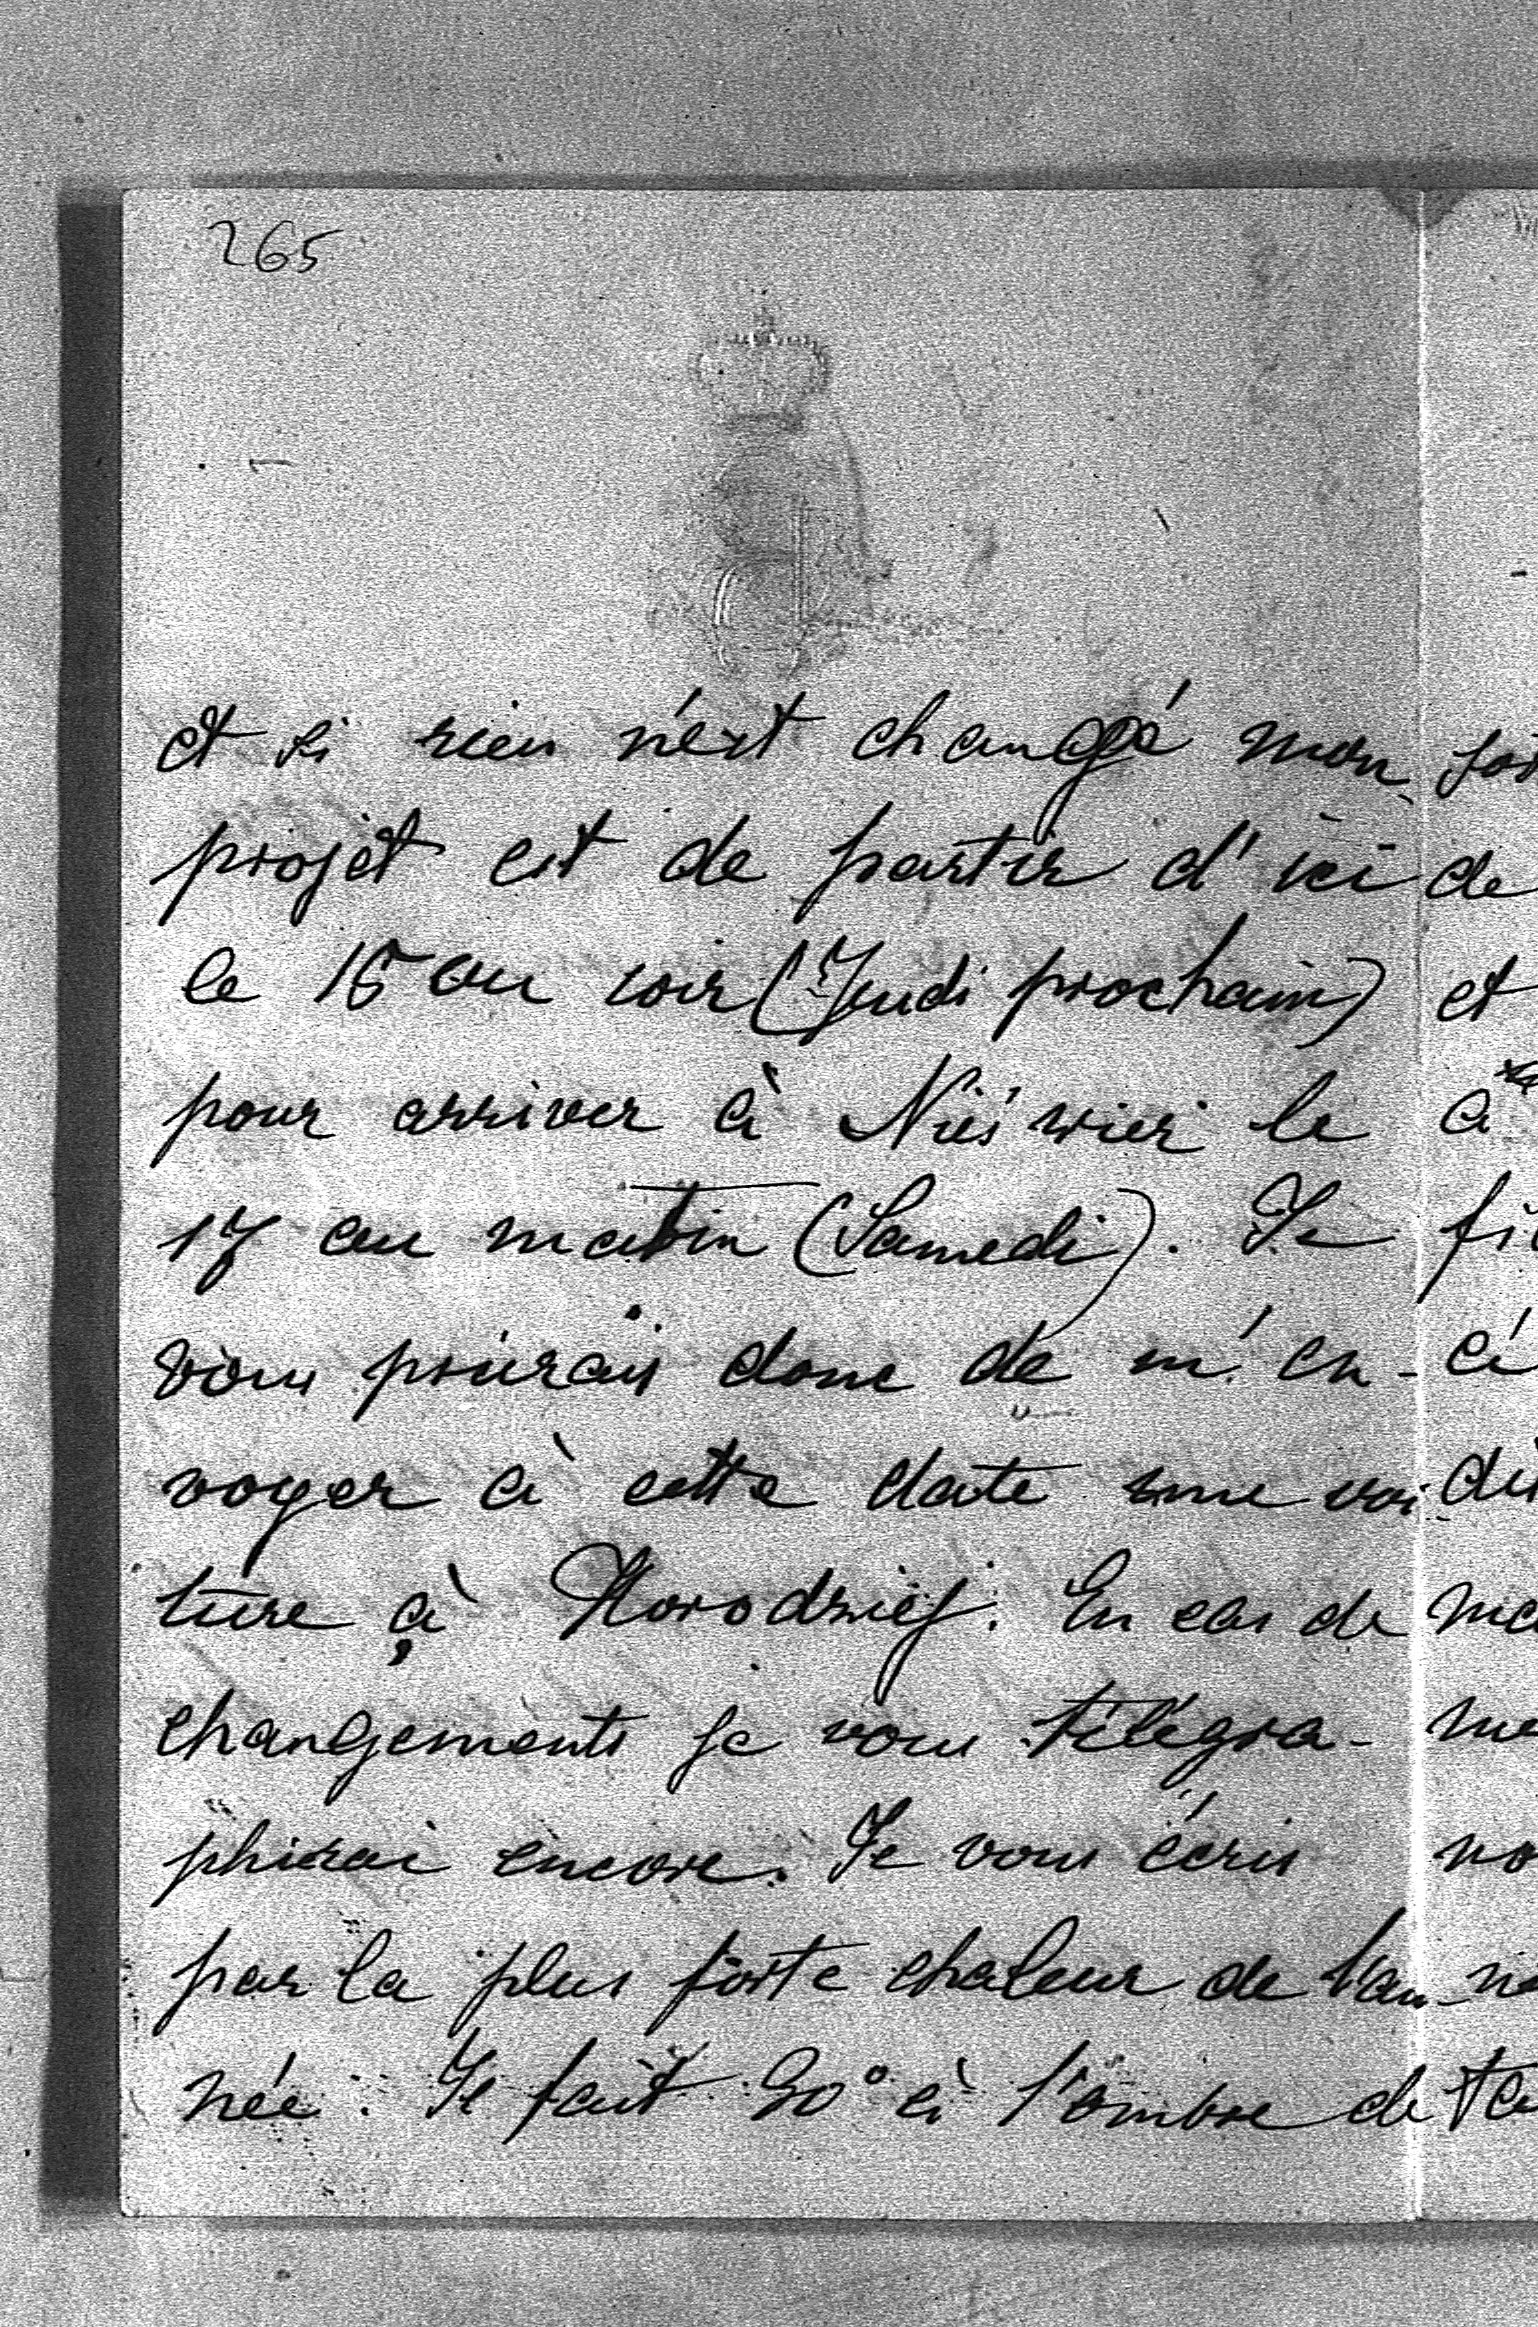 265
et si rien n'est changé mon
projet est de partir d'ici
le 15 au soir (Jeudi prochain)
pour arriver à Nieświez le
17 au matin (Samedi). Je
vous prierais donc de m'en-
voyer à cette date une voi-
ture à Horodziej. En cas de
changements je vous télégra-
phierai encore. Je vous écris
par la plus forte chaleur de l'an-
née. Il fait 30° à l'ombre de
de
et